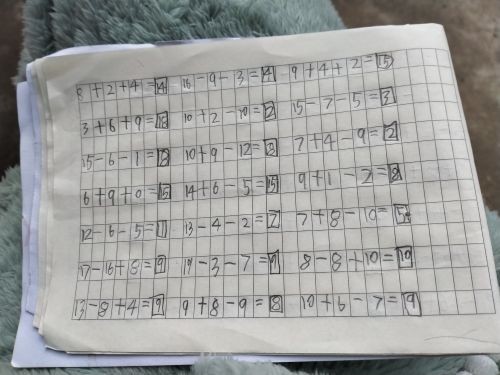 8+2+4=14 16-9-3=4 9+4+2=15
3+6+9=18 10+2-10=2 15-7-5=3
15-6-1=8 10+9-12=8 7+4-9=2
6+9+0=15 14+6-5=15 9+1-2=8
12-6-5=1 13-4-2=7 7+8-10=5
17-16+8=9 -3-7=9 8-8+10=10
13-8+4=9 9+8-9=8 10+6-7=9